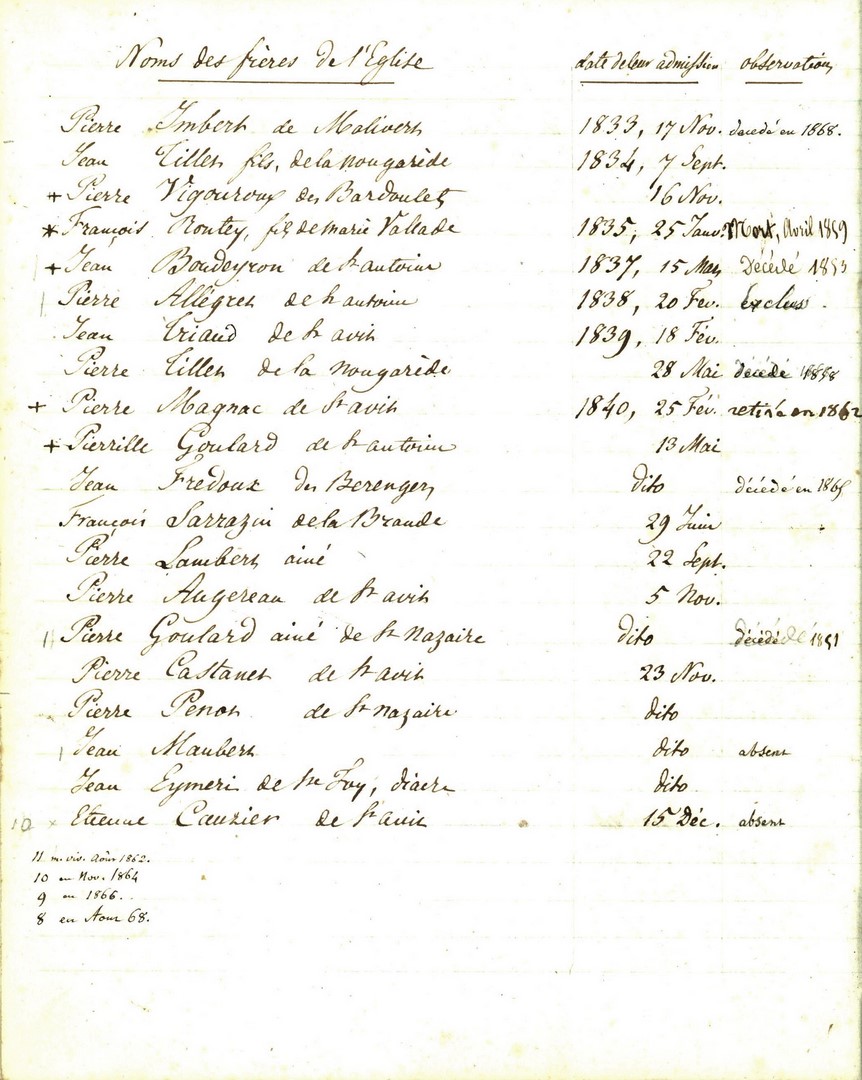 Noms des frères de l'Eglise date de leur admission observation
Pierre Imbert de Malivert 1833, 17 Nov. décédé en 1868.
Jean Tillet fils, de la nougarède 1834, 7 Sept.
+ Pierre Vigouroux des Bardoulets 16 Nov.
* François Routey, fils de marie Vallade 1835, 25 Janv. Mort, Avril 1859
+ Jean Boudeyron de St antoine 1837, 15 Mars Décédé 1853
Pierre Allégret de St antoine 1838, 20 Fev. Exclus.
Jean Triaud de St avit 1839, 18 Fév.
Pierre Tillet de la nougarède 28 Mai décédé 1858
+ Pierre Magnac de St avit 1840, 25 Fév. retiré en 1862
+ Pierrille Goulard de St antoine 13 Mai
Jean Fredoux des Berengers dito décédé en 1865
François Sarrazin de la Brande 29 Juin
Pierre Lambert ainé 22 Sept.
Pierre Augereau de St avit 5 Nov.
Pierre Goulard ainé de St Nazaire dito décédé 1851
Pierre Castanet de St avit 23 Nov.
Pierre Penot de St nazaire dito
Jean Maubert dito absent
Jean Eymeri de Ste Foy, diacre dito
10 x Etienne Cauzier de St avit 15 Déc. absent
11 m. viv. Août 1862.
10 en Nov. 1864
9 en 1866.
8 en Aout 68.